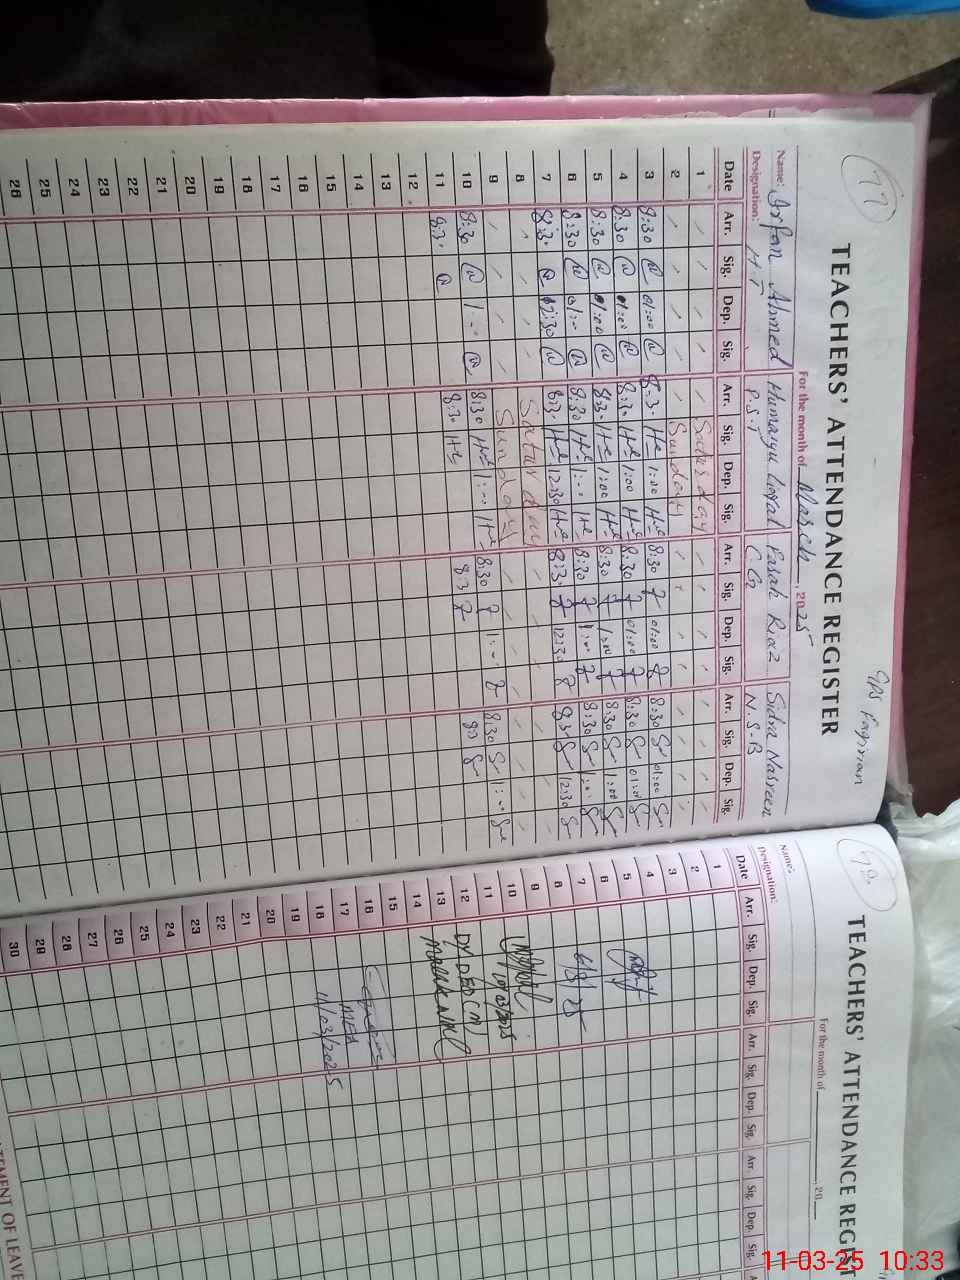 77
GPS
TEACHERS' ATTENDANCE REGISTER
For the month of March, 2025
Name: Irfan Ahmed Humayu Liaqat Farah Riaz Sidra Nasreen
Designation: H.T P.S.T C.G N.S.B
Date Arr. Sig. Dep. Sig. Arr. Sig. Dep. Sig. Arr. Sig. Dep. Sig. Arr. Sig. Dep. Sig.
1 Saturday
2 Sunday
3 8:30 01:00 8:3. 1:00 8:30 01:00 8:30 01:00
4 8:30 01:00 8:3. 1:00 8:30 01:00 8:30 01:00
5 8:30 01:00 8:3. 1:00 8:30 1:00 8:30 1:00
6 8:30 01:.. 8:30 1:.. 8:30 1:.. 8:30 1:..
7 8:3. 12:30 8:3. 12:30 8:3. 12:30 8:3 12:30
8 Saturday
9 Sunday
10 8:30 1:.. 8:30 1:.. 8:30 1:.. 8:30 1:..
11 8:3. 8:30 8:3 8:3
12
13
14
15
16
17
18
19
20
21
22
23
24
25
26
78
TEACHERS' ATTENDANCE REGIST
For the month of , 20
Name:
Designation:
Date Arr. Sig. Dep. Sig. Arr. Sig. Dep. Sig. Arr. Sig. Dep. Sig.
1
2
3
4
5
6
7
8
9
10
11
12
13
14
15
16
17
18
19
20
21
22
23
24
25
26
27
28
29
30
10/03/2025
DY DEO (M)
MEA
11/03/2025
ATEMENT OF LEAVE
11-03-25 10:33